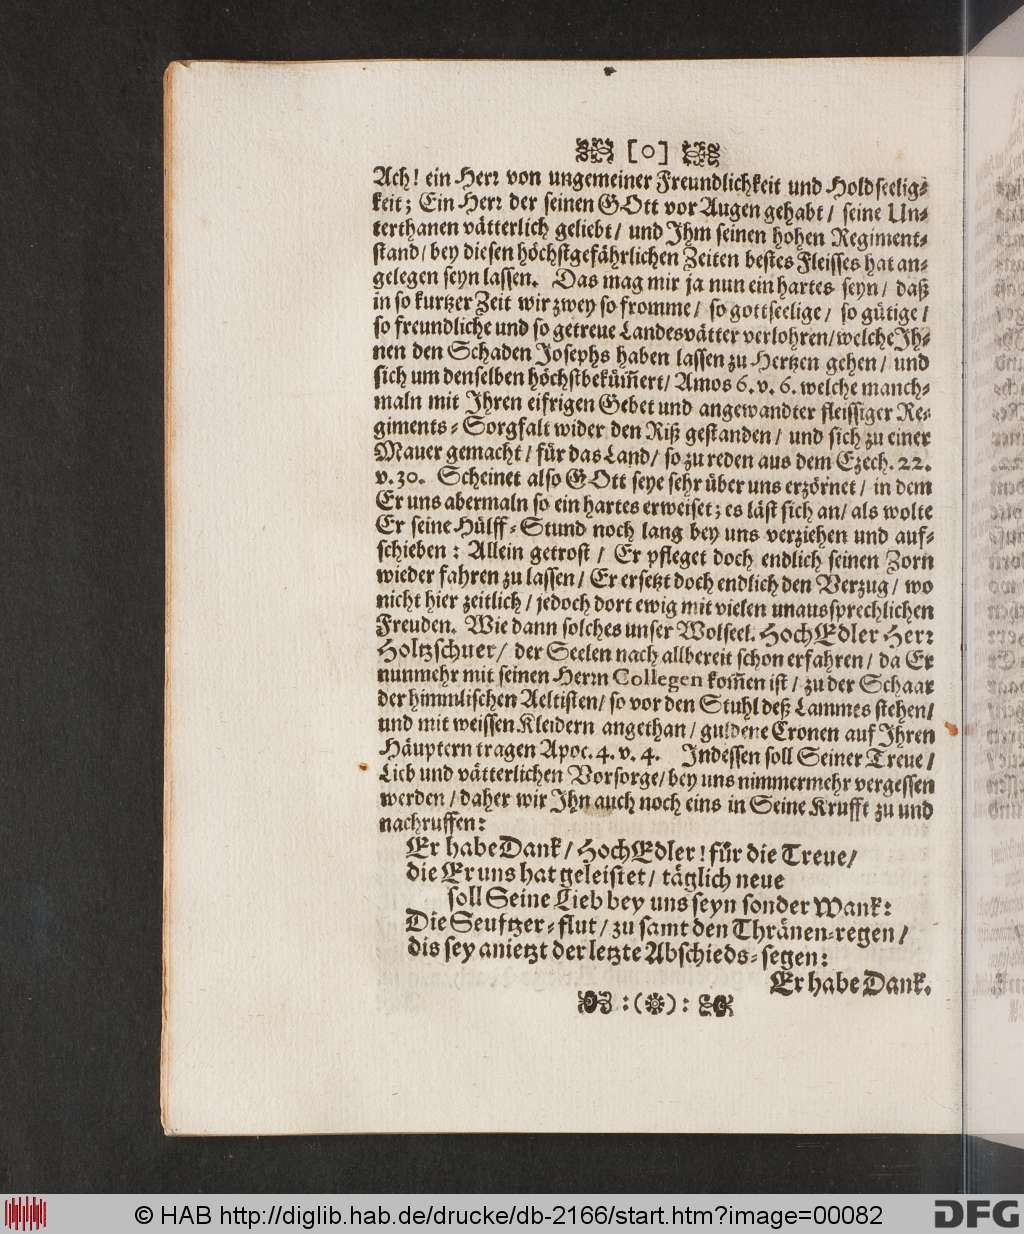 [o]
Ach! ein Herr von ungemeiner Freundlichkeit und Holdseelig-
keit; Ein Herr der seinen GOtt vor Augen gehabt/ seine Un-
terthanen vätterlich geliebt/ und Ihm seinen hohen Regiment-
stand/ bey diesen höchstgefährlichen Zeiten bestes Fleisses hat an-
gelegen seyn lassen. Das mag mir ja nun ein hartes seyn/ daß
in so kurtzer Zeit wir zwey so fromme/ so gottseelige/ so gütige/
so freundliche und so getreue Landesvätter verlohren/ welche Ih-
nen den Schaden Josephs haben lassen zu Hertzen gehen/ und
sich um denselben höchstbeküm̃ert/ Amos 6. v. 6. welche manch-
maln mit Ihren eifrigen Gebet und angewandter fleissiger Re-
giments-Sorgfalt wider den Riß gestanden/ und sich zu einer
Mauer gemacht/ für das Land/ so zu reden aus dem Ezech. 22.
v. 30. Scheinet also GOtt seye sehr über uns erzörnet/ in dem
Er uns abermaln so ein hartes erweiset; es läst sich an/ als wolte
Er seine Hülff-Stund noch lang bey uns verziehen und auf-
schieben: Allein getrost/ Er pfleget doch endlich seinen Zorn
wieder fahren zu lassen/ Er ersetzt doch endlich den Verzug/ wo
nicht hier zeitlich/ jedoch dort ewig mit vielen unaussprechlichen
Freuden. Wie dann solches unser Wolseel. HochEdler Herr
Holtzschuer/ der Seelen nach allbereit schon erfahren/ da Er
nunmehr mit seinen Herrn Collegen kom̃en ist/ zu der Schaar
der himmlischen Aeltisten/ so vor den Stuhl deß Lammes stehen/
und mit weissen Kleidern angethan/ guldene Cronen auf Ihren
Häuptern tragen Apoc. 4. v. 4. Indessen soll Seiner Treue/
Lieb und vätterlichen Vorsorge/ bey uns nimmermehr vergessen
werden/ daher wir Ihn auch noch eins in Seine Krufft zu und
nachruffen:
Er habe Dank/ HochEdler! für die Treue/
die Er uns hat geleistet/ täglich neue
soll Seine Lieb bey uns seyn sonder Wank:
Die Seuftzer-flut/ zu samt den Thränen-regen/
dis sey anietzt der letzte Abschieds-segen:
Er habe Dank.
:(❁):
© HAB http://diglib.hab.de/drucke/db-2166/start.htm?image=00082
DFG